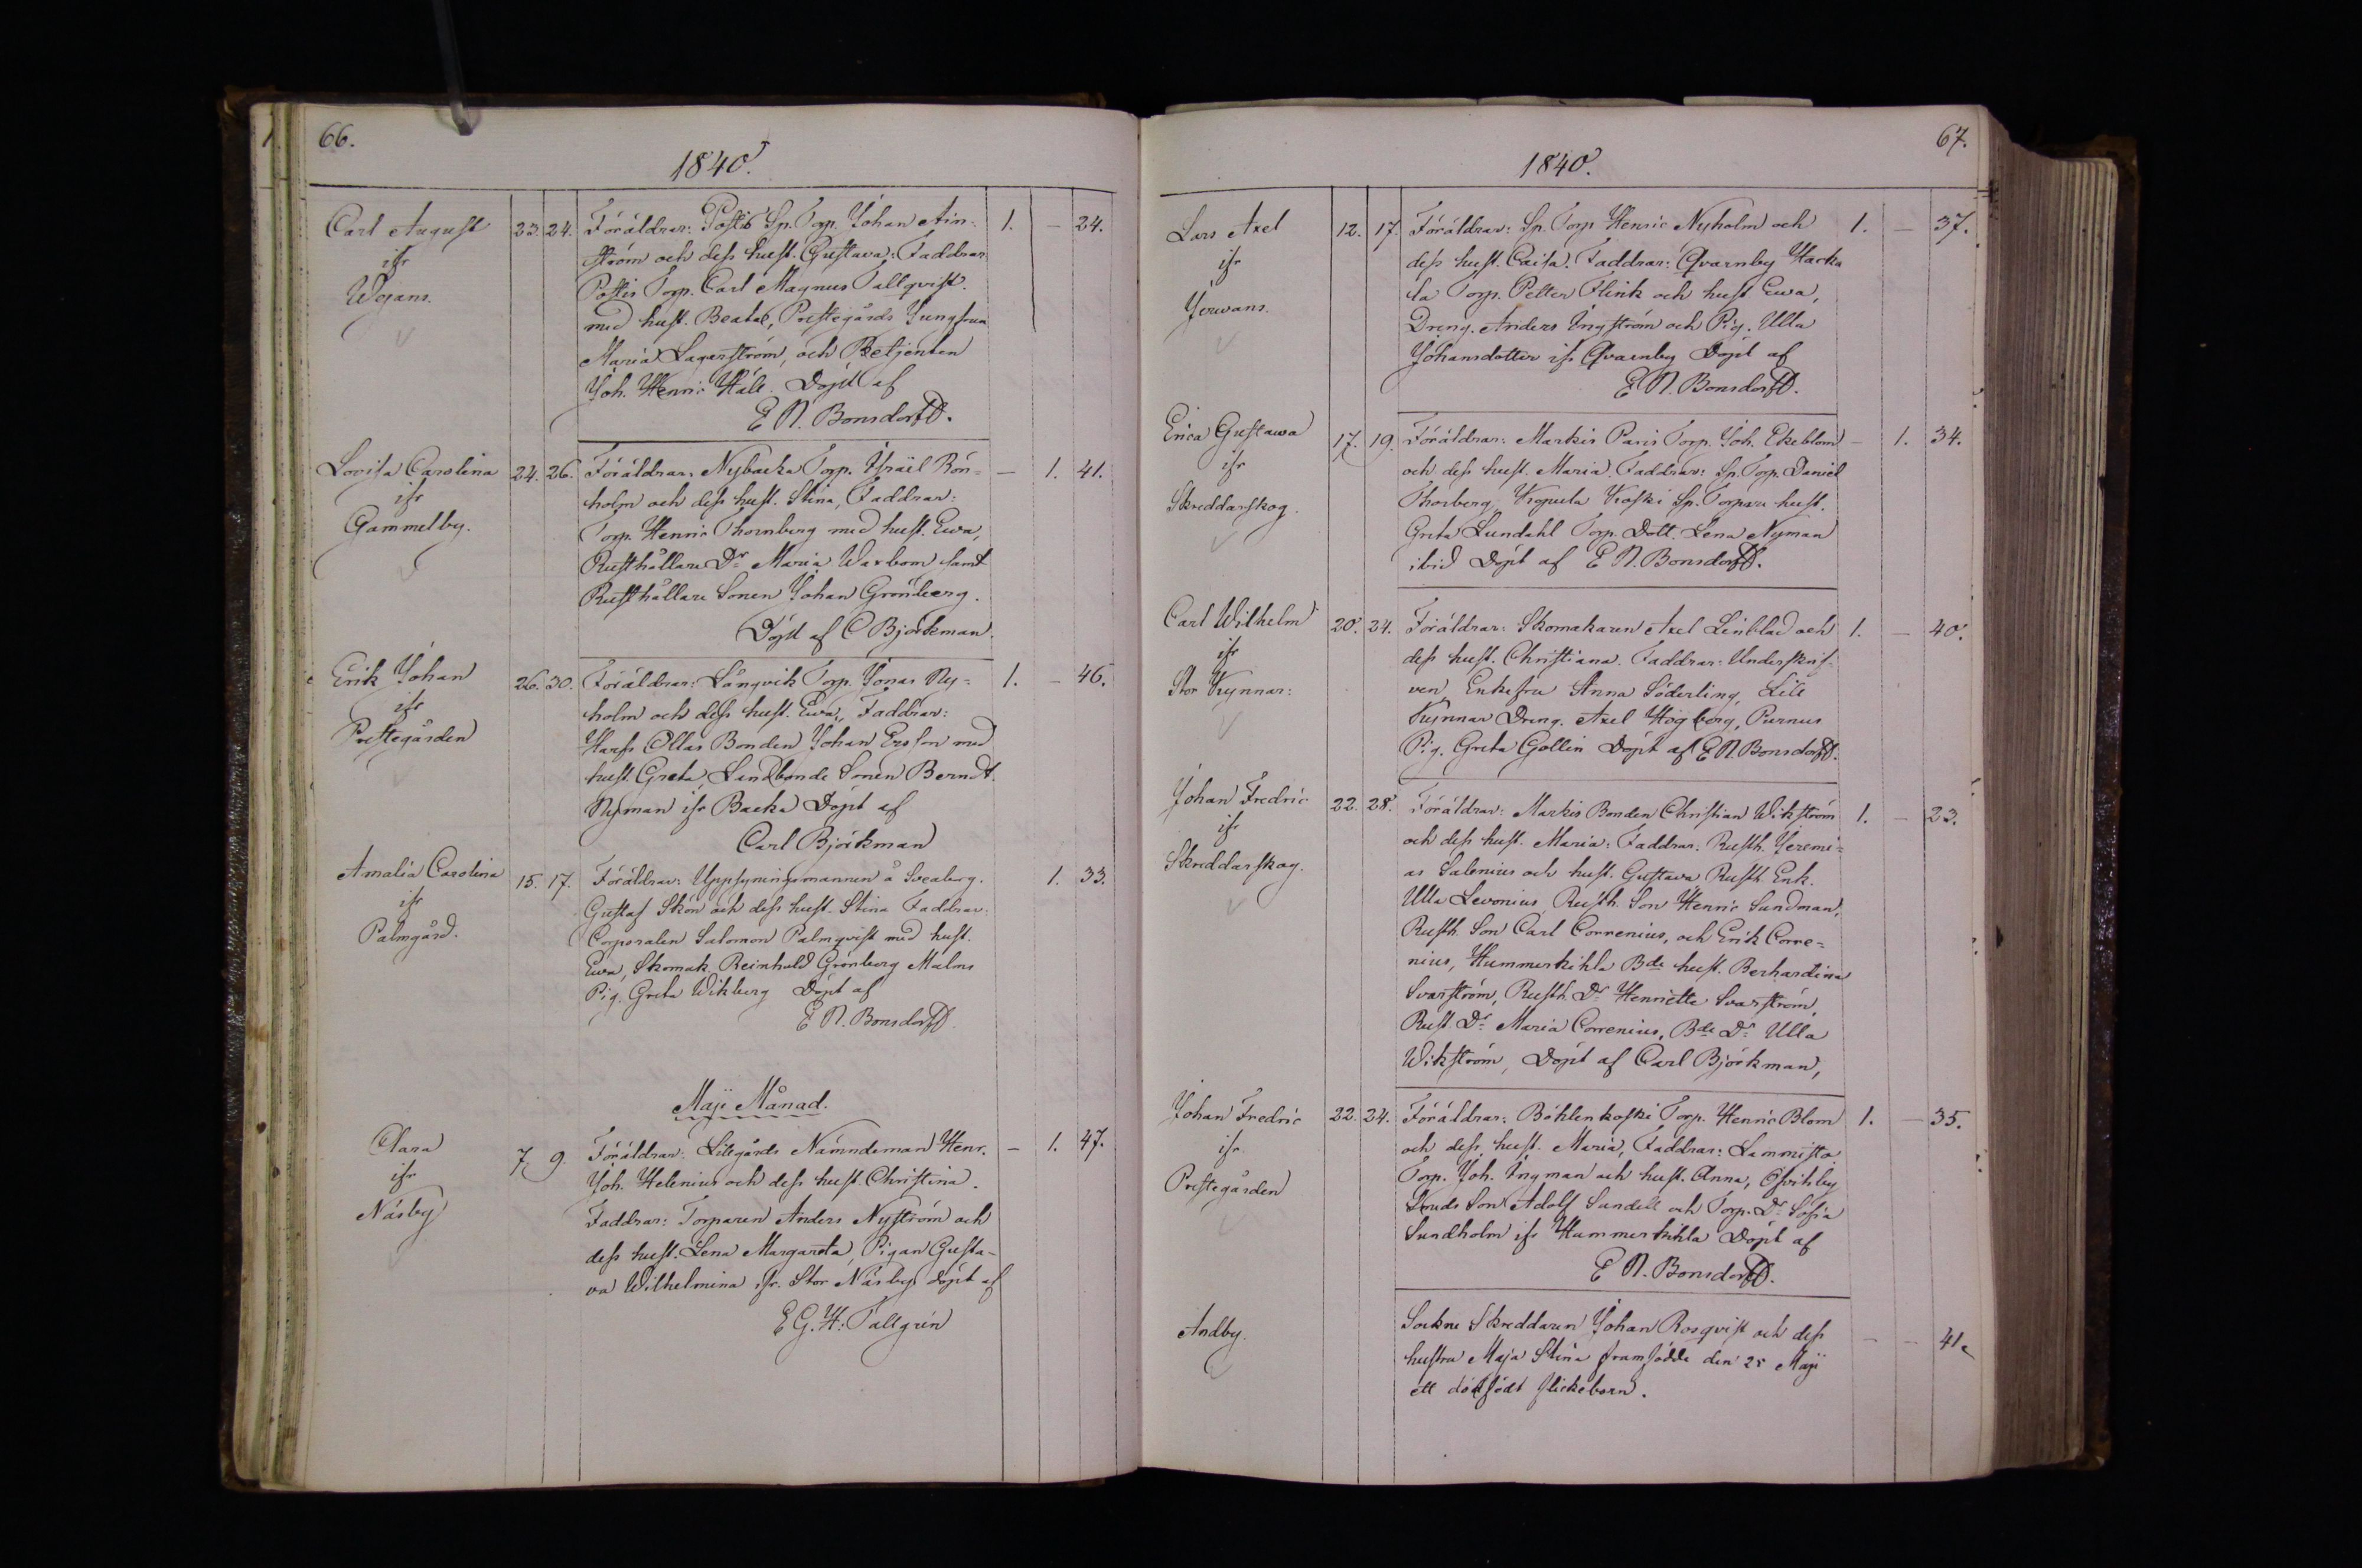 66.
1840.
Carl August 23. 24. Föräldrar: Postis Sp. Torp. Johan Ain-
ström och dess hust. Gustava: Faddrar 1. — 24.
ifr
Wejans.
Postis Torp. Carl Magnus Tallqvist.
med hust. Beata, Prestegårds Jungfrun
Maria Lagerström, och Betjenten
Joh. Henric Häll. Döpt af
E N. Bonsdorff.
Lovisa Carolina 24. 26. Föräldrar: Nybacka Torp. Israël Rön-
holm och dess hust. Stina, Faddrar: — 1. 41.
ifr
Gammelby.
Torp. Henric Thornberg med hust. Ewa,
Rusthållare Dr Maria Waxbom samt
Rusthållare Sonen Johan Grönberg.
Döpt af C Björkman.
Erik Johan 26. 30. Föräldrar: Långvik Torp. Jonas Ny-
holm och dess hust. Ewa, Faddrar: 1. — 46.
ifr
Prestegården
Hans Ollas Bonden Johan Ersson med
hust. Greta, Landbonde Sonen Berndt.
Nyman ifr Backa Döpt af
Carl Björkman
Amalia Carolina 15. 17. Föräldrar: Uppsyningsmannen å Sveaborg.
Gustaf Skön och dess hust. Stina Faddrar: 1. 33.
ifr
Palmgård.
Corporalen Salomon Palmqvist med hust.
Ewa, Skomak. Reinhold Grönberg Malms
Pig. Greta Wikberg Döpt af
E N. Bonsdorff.
Maji Månad.
Clara 7 9. Föräldrar: Lillgårds Nämndeman Henr. — 1. 47.
ifr
Näsby
Joh. Helenius och dess hust. Christina.
Faddrar: Torparen Anders Nyström och
dess hust. Lena Margareta, Pigan Gusta-
va Wilhelmina ifr. Stor Näsby döpt af
E. G. H: Tallgrén
67.
1840.
Lars Axel 12. 17. Föräldrar: Sp. Torp Henric Nyholm och 1. — 37.
ifr
Jerwans.
dess hust. Caisa. Faddrar: Qvarnby Harka
la Torp. Petter Flink och hust Ewa,
Dreng. Anders Ingström och Pig. Ulla
Johansdotter ifr Qvarnby Döpt af
E N. Bonsdorff.
Erica Gustawa 17. 19. Föräldrar: Markis Paris Torp. Joh. Ekeblom — 1. 34.
ifr
Skreddarskog.
och dess hust. Maria. Faddrar: Sp. Torp. Daniel
Thorberg, Kopula Koski Sp. Torpare hust.
Greta Lundahl Torp. Dott. Lena Nyman
ibid Döpt af E N. Bonsdorff.
Carl Wilhelm 20. 24. Föräldrar: Skomakaren Axel Linblad och 1. — 40.
ifr
Stor Kynnar:
dess hust. Christiana. Faddrar: Underskrif-
ven, Enkefru Anna Söderling, Lill
Kynnar Dreng. Axel Högberg, Purnus
Pig. Greta Gollin Döpt af E N. Bonsdorff.
Johan Fredric 22. 28. Föräldrar: Markis Bonden Christian Wikström 1. — 23.
ifr
Skreddarskog.
och dess hust. Maria: Faddrar: Rusth. Jeremi-
as Salenius och hust. Gustava Rusth Enk.
Ulla Levonius, Rusth. Son Henric Sundman,
Rusth. Son Carl Correnius, och Erik Corre-
nius, Hummerkihla Bde hust. Berhardina
Svarström, Rusth. Dr Henriette Svarström,
Rust. Dr Maria Correnius, Bde Dr Ulla
Wikström, Döpt af Carl Björkman,
Johan Fredric 22. 24. Föräldrar: Böhlenkoski Torp. Henric Blom 1. — 35.
ifr
Prestegården
och dess hust. Maria, Faddrar: Lammisto
Torp. Joh. Ingman och hust. Anna, Ofvitby
Son Adolf Sandell och Torp. Dr Sofia
Sundholm ifr Hummerkihla Döpt af
E N. Bonsdorff.
Andby.
Sockne Skreddaren Johan Rosqvist och dess — — 41.
hustru Maja Stina framfödde den 25 Maji
ett dödfödt flickebarn.